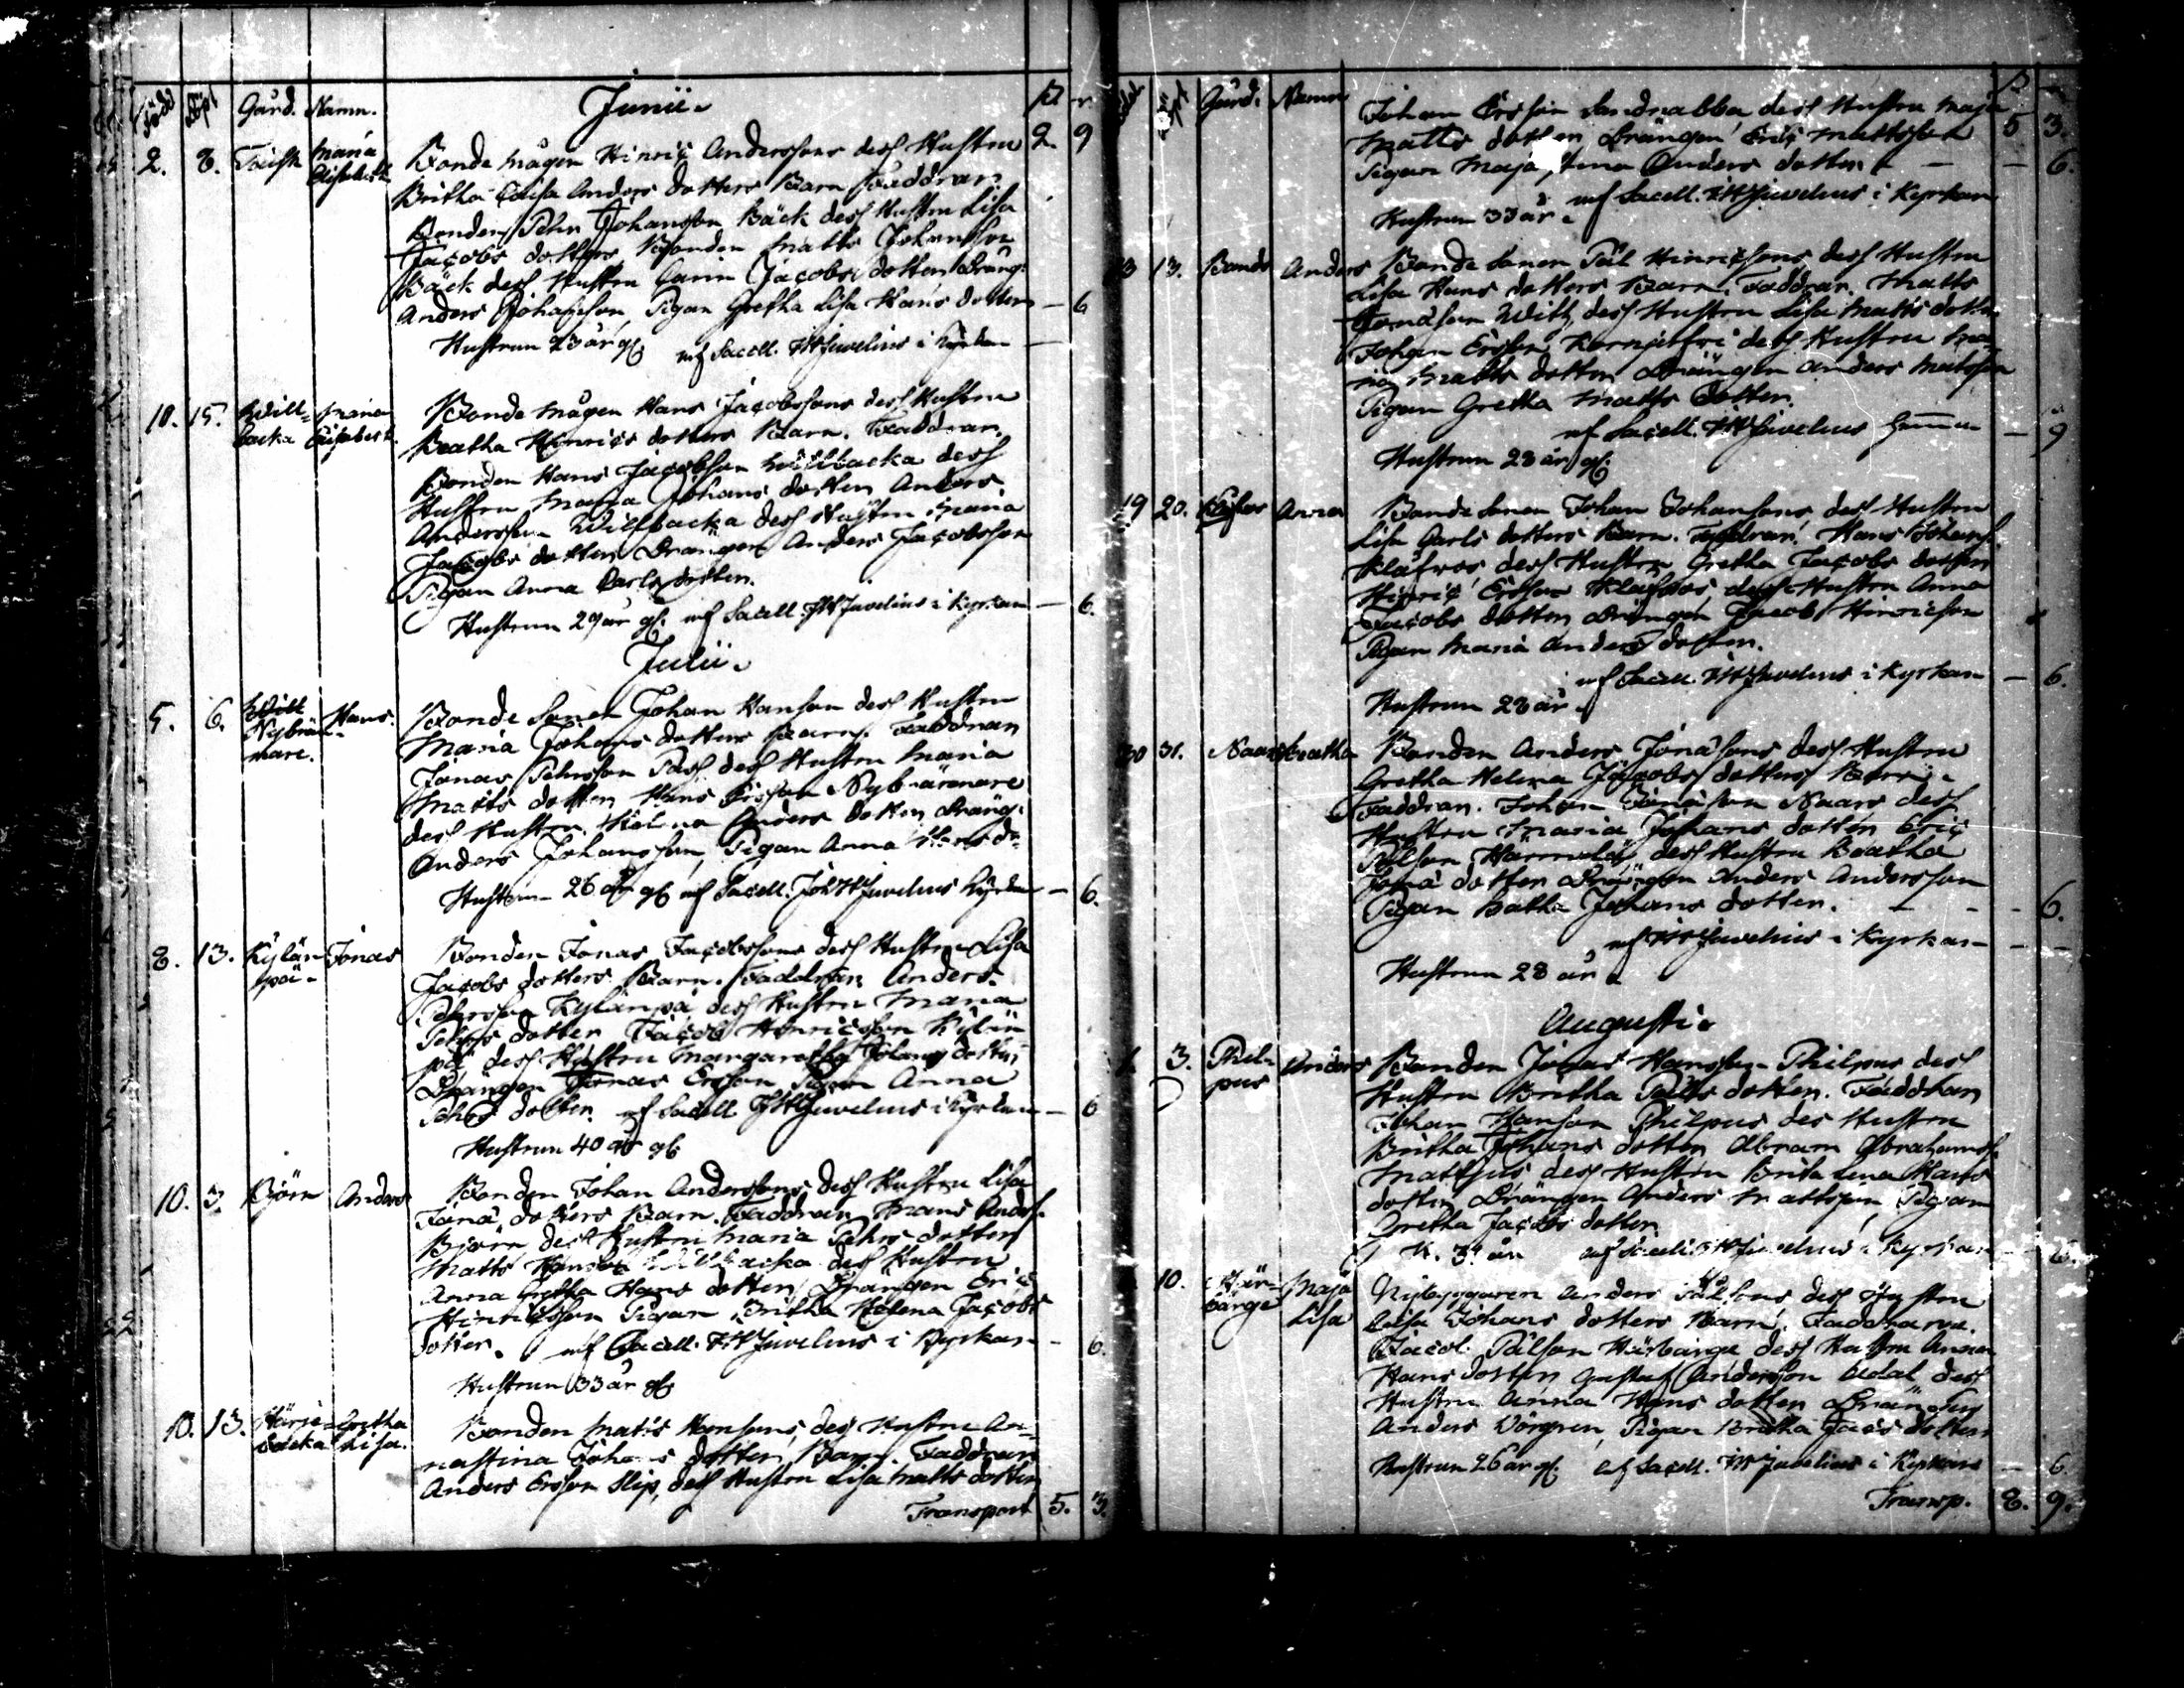 Född Döpt Gård. Namn. Junii.
2. 8. Maria Elisabeth Bonde mågen Hinric Anderssons dess Hustru 2 9
Britha Caisa Anders dotters Barn Faddrar
Bonden Pehr Johansson Bäck dess Hustru Lisa
Jacobs dotters, Bonden Matts Johansson
Bäck dess Hustru Carin Jacobs dotter Dräng:
Anders Johansson, Pigan Gretha Lisa Hans dotter — 6
Hustrun 23 år gl. af Sacell. Juvelius i Kyrkan —
10. 15. Will-backa Maria Elisabeth Bonde mågen Hans Jacobssons dess Hustru
Beatha Hinrics dotters Barn. Faddrar
Bonden Hans Jacobsson Willbacka dess
Hustru Maria Johans dotter, Anders
Andersson Willbacka dess Hustru Maria
Jacobs dotter, Drängen Anders Jacobsson
Pigan Anna Carls dotter.
Hustrun 29 år gl. af Sacell. Juvelius i Kyrkan — 6.
Julii.
5. 6. Nybrän-mare. Hans. Bonde Sonen Johan Hansson dess Hustru
Maria Johans dotters Barn. Faddrar
Jonas Pehrsson Pass dess Hustru Maria
Matts dotter Hans Ersson Nybränmare
dess Hustru Helena Anders dotter, Dräng:
Anders Johansson, Pigan Anna Hans d:
Hustrun 26 år gl. af Sacell. Joh Juvelius Kyrkan — 6.
8. 13. Kylän-pä- Jonas Bonden Jonas Jacobssons dess Hustru Lisa
Jacobs dotters Barn. Faddrar Anders
Pehrsson Kylänpä dess Hustru Maria
Pehrs dotter Jacob Hinricsson Kylän
pä dess Hustru Margaretha Johans dotter
Drängen Jonas Ersson Pigan Anna
Pehrs dotter. af Sacell Juvelius i Kyrkan — 6
Hustrun 40 år gl
10. 3. Björn Anders Bonden Johan Anderssons dess Hustru Lisa
Jona dotters Barn. Faddrar Hans Anders.
Björn dess Hustru Maria Pehrs dotter
Matts Hansson Willbacka dess Hustru
Anna Gretha Hans dotter, Drängen Eric
Hinricsson Pigan Britha Helena Jacobs
dotter. af Sacell. Juvelius i Kyrkan — 6.
Hustrun 33 år gl
10. 13. Gretha Lisa. Bonden Matts Hanssons, dess Hustru An-
nastina Johans dotter, Barn. Faddrar
Anders Ersson Slip, dess Hustru Lisa Matts dotter
Transport 5. 3.
Gård. Namn Johan Ersson Sandnabba dess Hustru Maja
Matts dotter, Drängen Eric Mattsson 5 3.
Pigan Maja Anna Anders dotter — — 6.
af Sacell. Juvelius i Kyrkan
Hustrun 33 år.
13 13. Bands Anders Bonde Sonen Pål Hinricssons dess Hustru
Lisa Hans dotters Barn. Faddrar. Matts
Jonasson Witz, dess Hustru Lisa Matts dotter
Johan Ersson dess Hustru Ma-
ria Matts dotter Drängen Anders Matsson
Pigan Gretha Matts dotter.
af Sacell. Juvelius Hemma — 9
Hustrun 23 år gl.
19 20. Klåfvos Anna Bonde Sonen Johan Johanssons dess Hustru
Lisa Carls dotters Barn. Faddrar. Hans Johans.
Klåfvos dess Hustru Gretha Jacobs dotter
Hinric Ersson Klåfvos dess Hustru Anna
Jacobs dotter, Drängen Jacob Hinricsson
Pigan Maria Anders dotter.
af Sacell. Juvelius i Kyrkan — 6.
Hustrun 28 år
30 31. Naars Beatha Bonden Anders Jonassons dess Hustru
Gretha Helena Jacobs dotters Barn.
Faddrar. Johan Jonasson Naars dess
Hustru Maria Johans dotter, Eric
Pålson Härmälä dess Hustru Beatha
Jona dotter Drängen Anders Andersson
Pigan Johans dotter. — — 6.
af Juvelius i Kyrkan — —
Hustrun 28 år
Augusti.
3. Philpus Anders Bonden Jonas Hansson Philpus dess
Hustru Britha Påls dotter. Faddrar
Johan Hansson Philpus des Hustru
Britha Johans dotter, Abram Abrahams.
Mattjus dess Hustru Brita Lena Hans
dotter, Drängen Anders Mattsson, Pigan
Gretha Jacobs dotter
H. 3. år af Sacell. Juvelius i Kyrkan — 6.
10. Här-bärge Maja Lisa Nybyggaren Anders Pålsons dess Hustru
Caisa Johans dotters Barn. Faddrarne.
Jacob Pålson Härbärge dess Hustru Anna
Hans dotter, Gustaf Andersson Udal dess
Hustru Anna Hans dotter, Drängen
Anders Dörgren, Pigan Britha Jacobs dotter
Hustrun 26 år gl. af Sacell. Juvelius i Kyrkan — 6.
Transp. 8. 9.